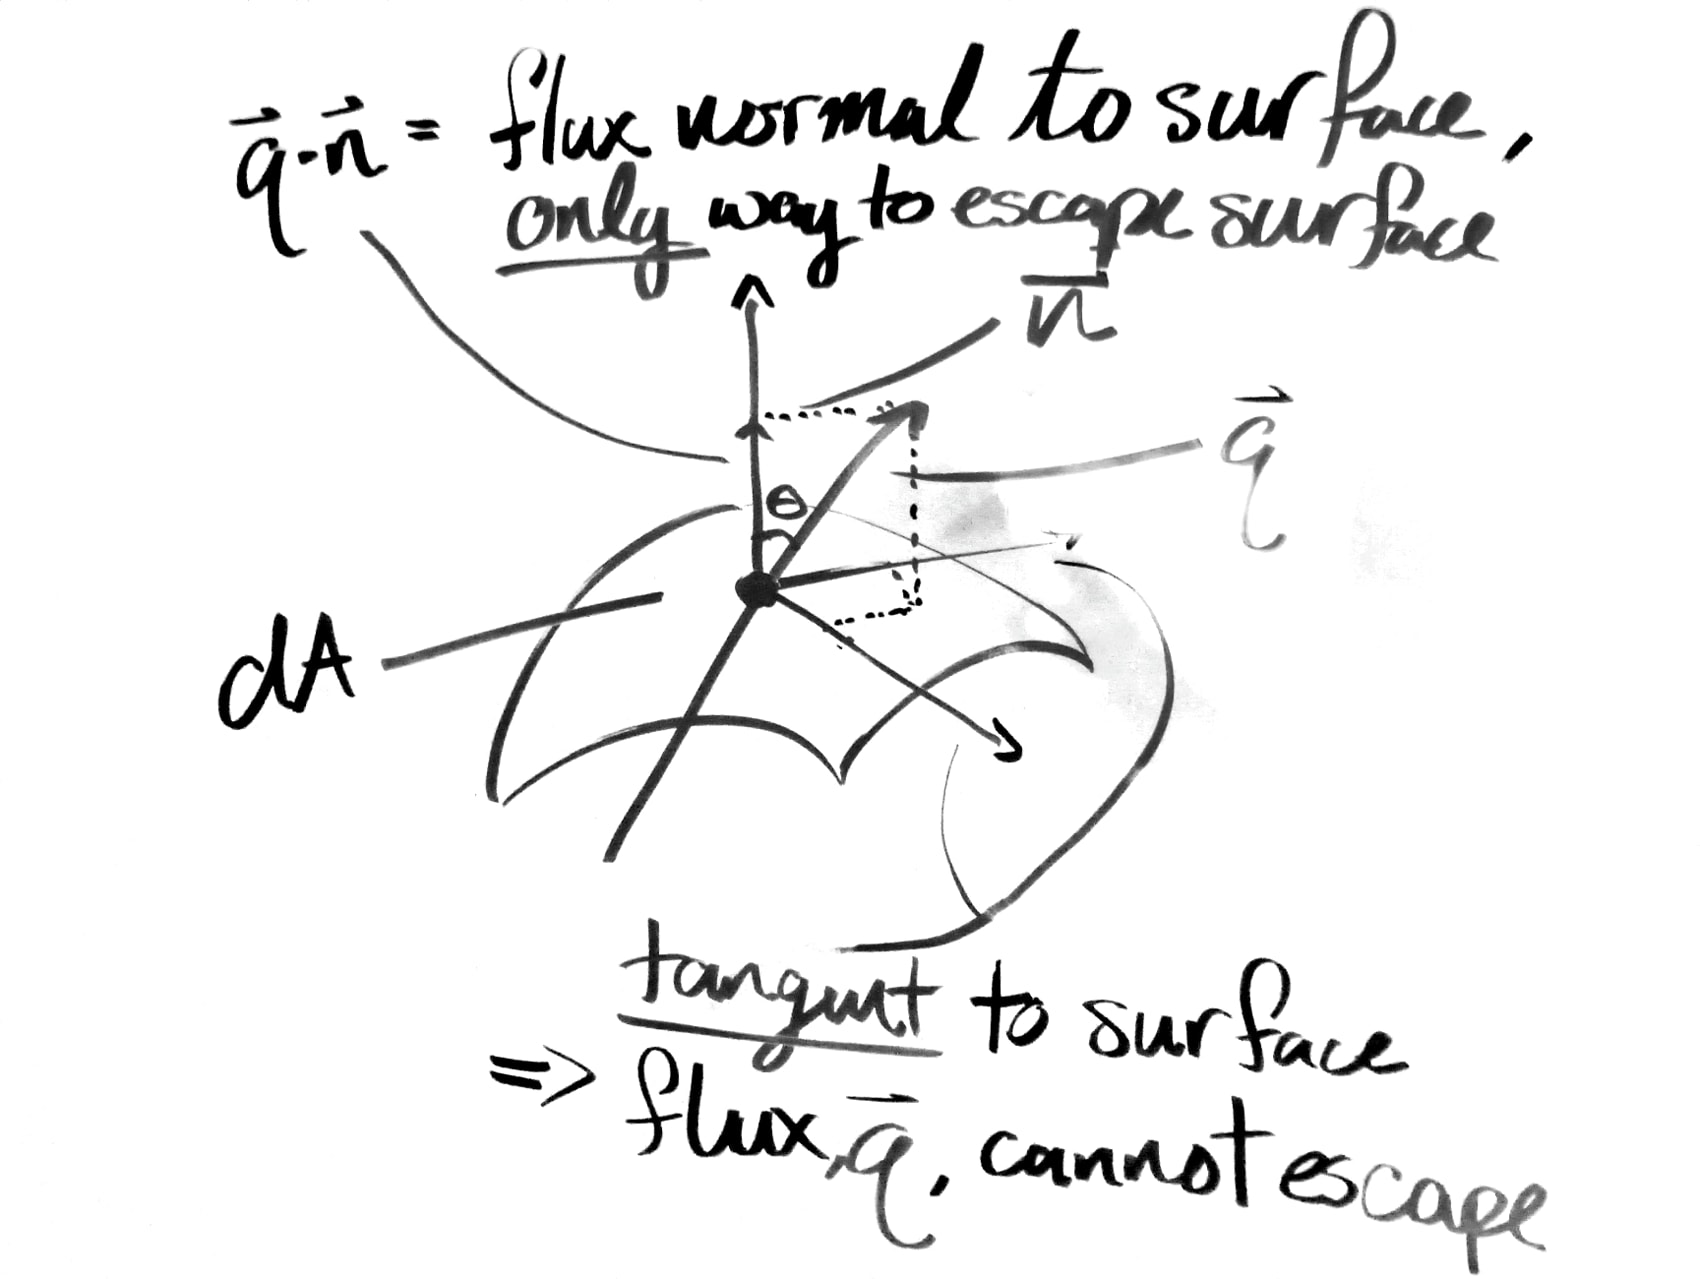 q⃗·n⃗ = flux normal to surface,
only way to escape surface
n̅
q⃗
θ
dA
tangent to surface
⇒ flux, q⃗, cannot escape